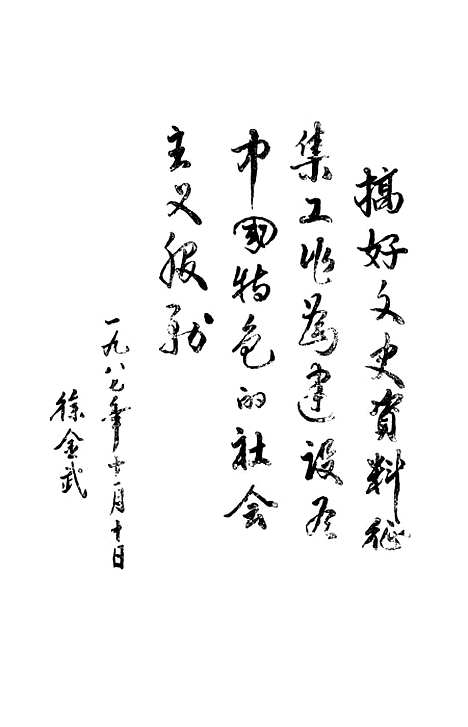 搞好文史資料征
集工作為建设有
中國特色的社会
主义服务
一九八七年十一月十日
徐金武